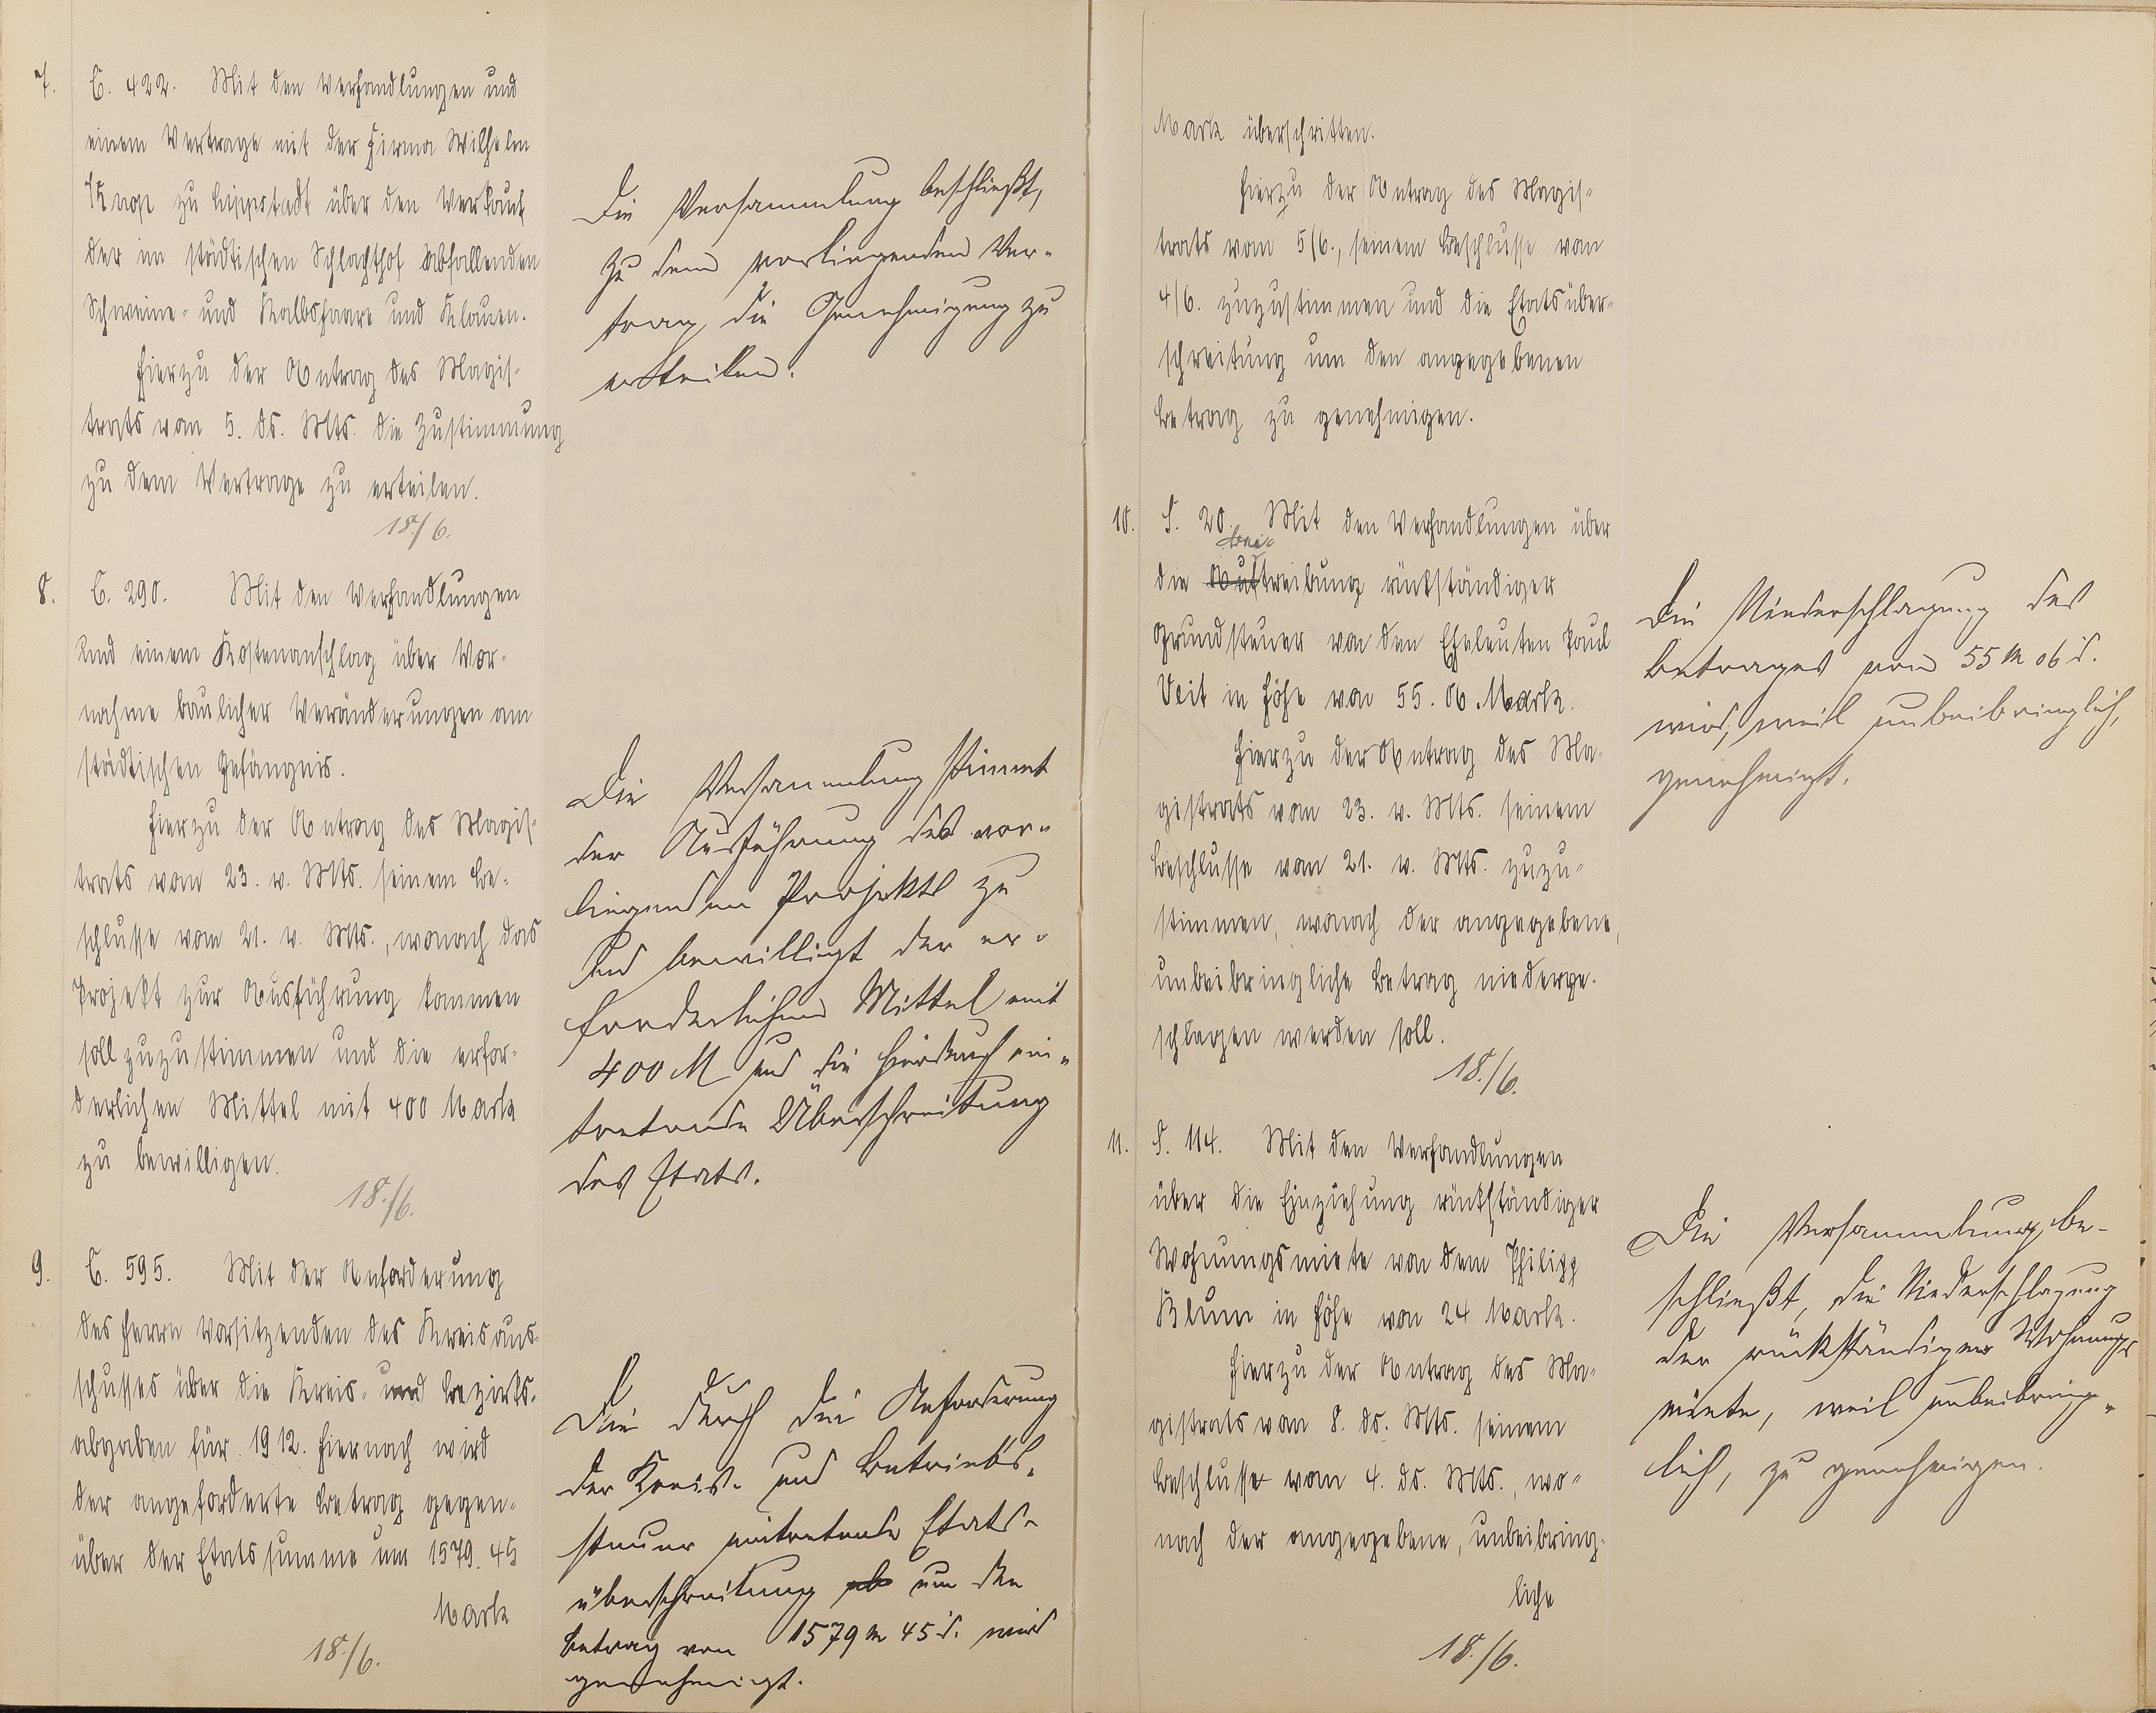 7. C. 422. Mit den Verhandlungen und
einem Vertrage mit der Firma Wilhelm
Knop zu Lippstadt über den Verkauf
der im städtischen Schlachthof abfallenden
Schweine- und Kalbshaare und Klauen.
Hierzu der Antrag des Magis-
trats vom 5. ds. Mts. die Zustimmung
zu dem Vertrage zu erteilen.
18./6.
Die Versammlung beschließt,
zu dem vorliegenden Ver-
trag die Genehmigung zu
erteilen.
8. C. 290. Mit den Verhandlungen
und einem Kostenanschlag über Vor-
nahme baulicher Veränderungen am
städtischen Gefängnis.
Hierzu der Antrag des Magis-
trats vom 23. v. Mts. seinem Be-
schlusse vom 21. v. Mts., wonach das
Projekt zur Ausführung kommen
soll zuzustimmen und die erfor-
derlichen Mittel mit 400 Mark
zu bewilligen.
18./6.
Die Versammlung stimmt
der Ausführung des vor-
liegenden Projekts zu
und bewilligt der er-
forderlichen Mittel mit
400 M und die hierdurch ein-
tretende Überschreitung
des Etats.
9. C. 595. Mit der Anforderung
des Herrn Vorsitzenden des Kreisaus-
schusses über die Kreis- und Bezirks-
abgaben für 1912. Hiernach wird
der angeforderte Betrag gegen-
über der Etatssumme um 1579.45
Mark
18./6.
Die durch die Anforderung
der Kreis- und Betriebs-
steuer eintretende Etats-
überschreitung um den
Betrag von 1579 M 45 d. wird
genehmigt.
Mark überschritten.
Hierzu der Antrag des Magis-
trats vom 5/6., seinem Beschlusse vom
4/6. zuzustimmen und die Etatsüber-
schreitung um den angegebenen
Betrag zu genehmigen.
10. S. 20. Mit den Verhandlungen über
die Auftreibung rückständiger
Grundsteuer von den Eheleuten Paul
Veit in Höhe von 55.06 Mark.
Hierzu der Antrag des Ma-
gistrats vom 23. v. Mts. seinem
Beschlusse vom 21. v. Mts. zuzu-
stimmen, wonach der angegebene,
unbeibringliche Betrag niederge-
schlagen werden soll.
18./6.
Die Niederschlagung des
Betrages von 55 M 06 d.
wird, weil unbeibringlich,
genehmigt.
11. S. 114. Mit den Verhandlungen
über die Einziehung rückständiger
Wohnungsmiete von dem Philipp
Blum in Höhe von 24 Mark.
Hierzu der Antrag des Ma-
gistrats von 8. ds. Mts. seinem
Beschlusse vom 4. ds. Mts., wo-
nach der angegebene, unbeibring-
liche
18./6.
Die Versammlung be-
schließt, die Niederschlagung
der rückständigen Wohnungs
miete, weil unbeibring-
lich, zu genehmigen.